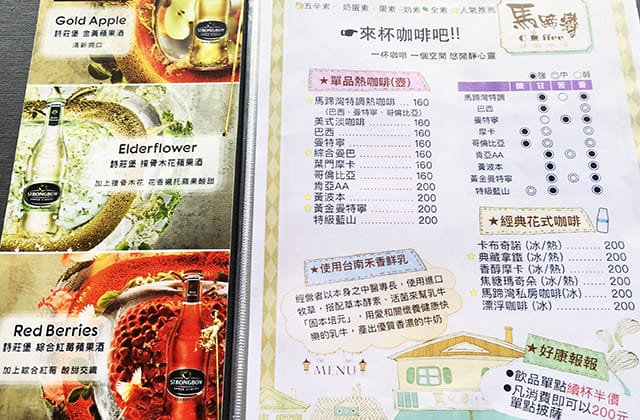 Gold Apple
詩莊堡 金黃蘋果酒
清新爽口
Elderflower
詩莊堡 接骨木花蘋果酒
加上接骨木花 花香襯托蘋果酸甜
STRONGBOW
Red Berries
詩莊堡 綜合紅莓蘋果酒
加上綜合紅莓 酸甜交織
STRONGBOW
五辛素 奶蛋素 蛋素 奶素 全素 人氣推薦
馬蹄灣
Coffee
來杯咖啡吧!!
一杯咖啡 一個空間 悠閒靜心靈
★單品熱咖啡(壺)
馬蹄灣特調熱咖啡 160
(巴西、曼特寧、哥倫比亞)
美式淡咖啡 160
巴西 160
曼特寧 160
綜合曼巴 160
葉門摩卡 160
哥倫比亞 160
肯亞AA 200
黃波本 200
黃金曼特寧 200
特級藍山 200
●強 ◎中 ○弱
酸 甘 苦 香
馬蹄灣特調
巴西
曼特寧
摩卡
哥倫比亞
肯亞AA
黃波本
黃金曼特寧
特級藍山
★經典花式咖啡
卡布奇諾 (冰/熱) 200
典藏拿鐵 (冰/熱) 200
香醇摩卡 (冰/熱) 200
焦糖瑪奇朵 (冰/熱) 200
馬蹄灣私房咖啡(冰) 200
漂浮咖啡 (冰) 200
★使用台南禾香鮮乳
經營者以本身之中醫專長，使用進口
牧草，搭配草本酵素、活菌來幫乳牛
「固本培元」，用愛和關懷養健康快
樂的乳牛，產出優質香濃的牛奶
MENU
★好康報報
飲品單點續杯半價
凡消費即可以200元
單點披薩